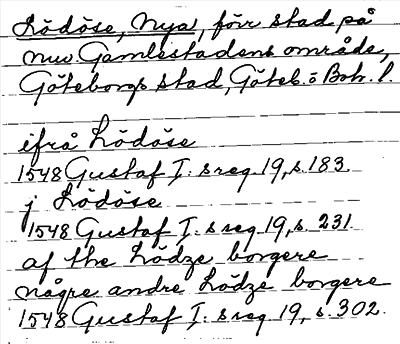 Lödöse, Nya, förr stad på
nuv. Gamlestadens område,
Göteborgs stad, Göteb. o Boh. l.
ifrå Lödöse
1548 Gustaf I:s reg 19, s. 183.
j Lödöse
1548 Gustaf I:s reg 19, s. 231.
af the Lödze borgere
någre andre Lödze borgere
1548 Gustaf I:s reg 19, s. 302.